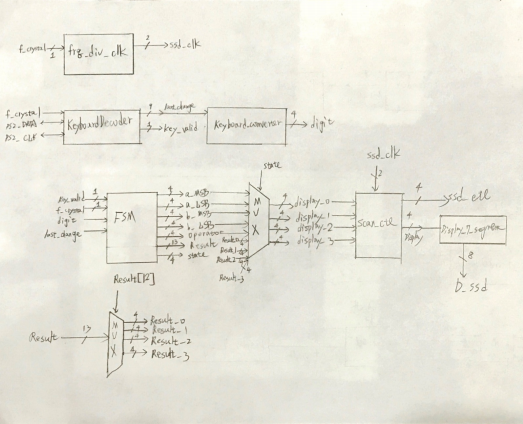 f_crystal
1
frq_div_clk
2
ssd_clk
f_crystal
PS2_DATA
PS2_CLK
KeyboardDecoder
9
last_change
1
key_valid
Keyboard_convertor
4
digit
state
ssd_clk
2
key_valid
1
f_crystal
1
digit
last_change
FSM
4
a_MSB
4
a_LSB
4
b_MSB
4
b_LSB
4
operator
13
Result
4
state
MUX
Result_
4
4
display_0
4
display_1
4
display_2
4
display_3
scan_ctl
4
ssd_ctl
4
display
Display_7_segment
8
D_ssd
Result[12]
Result
13
MUX
4
Result_0
4
Result_1
4
Result_2
4
Result_3